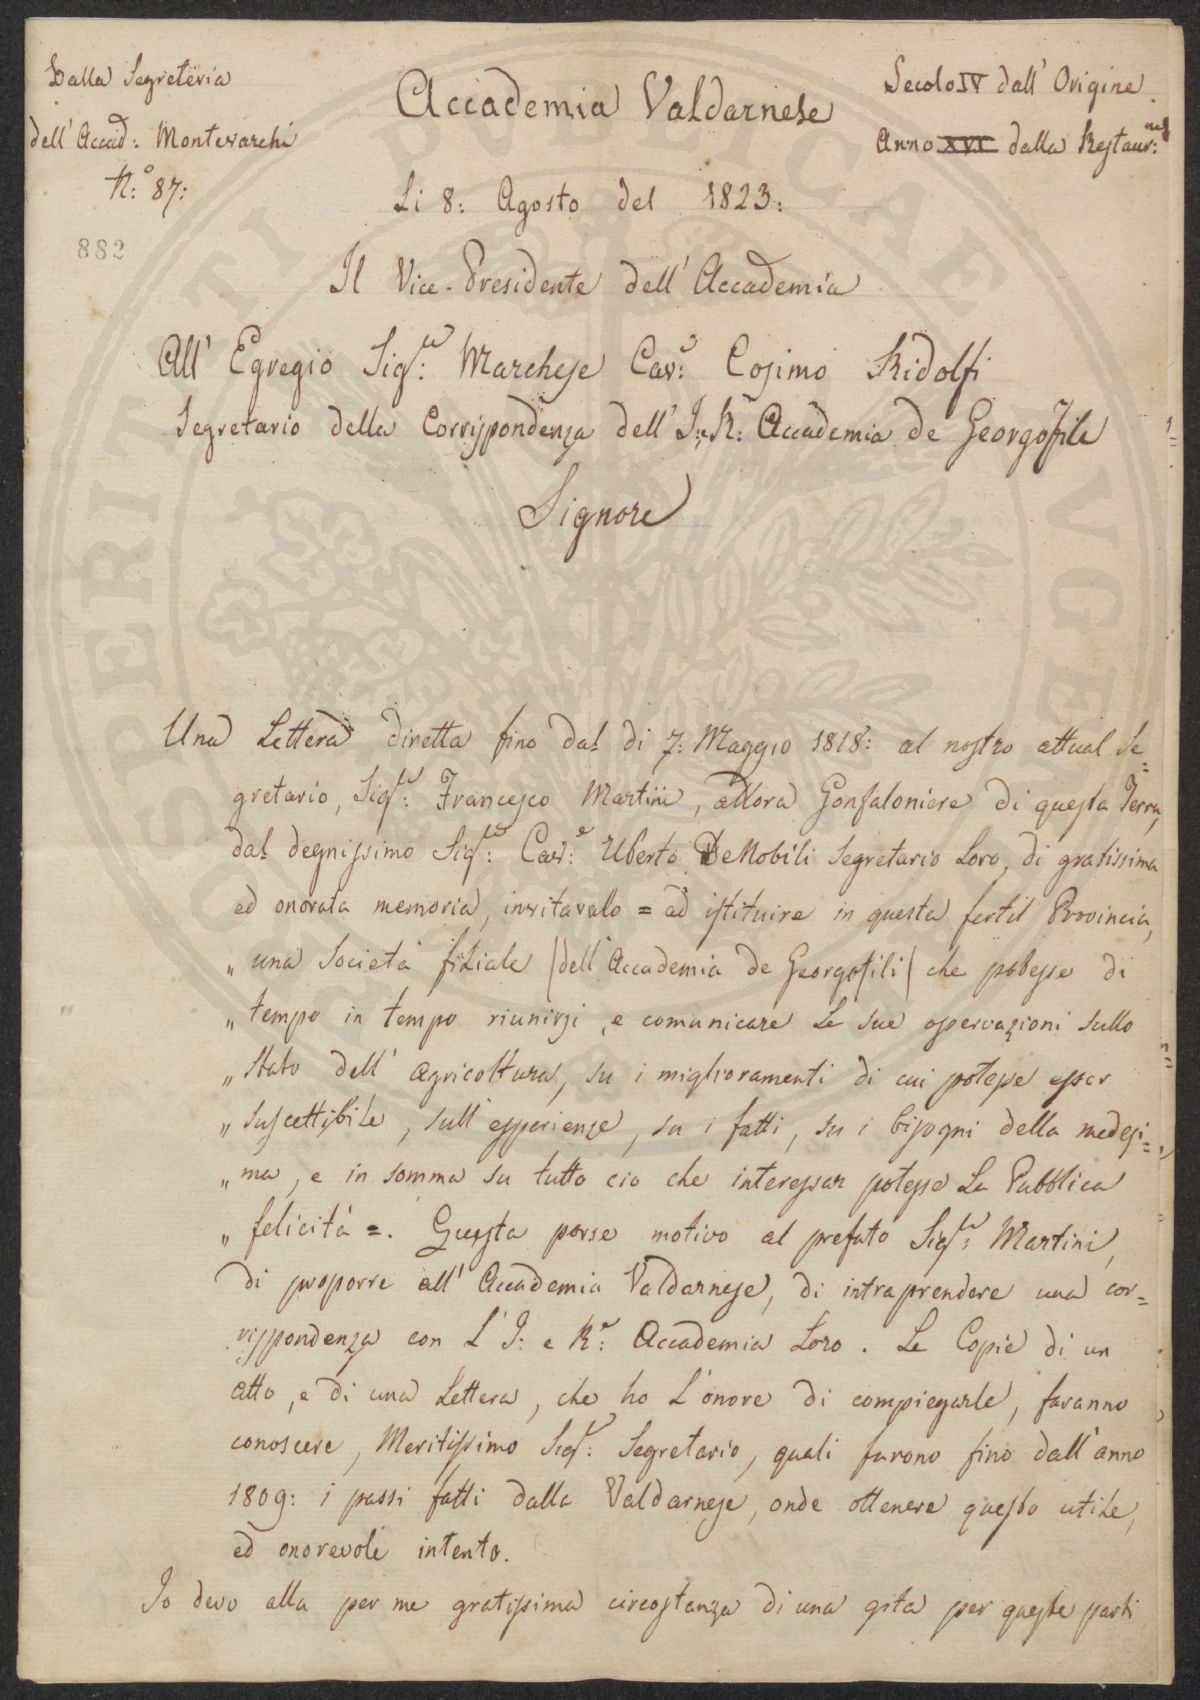 Dalla Segreteria
dell' Accad: Montevarchi
N:° 87:
882
Accademia Valdarnese
Secolo IV dall' Origine
Anno XVI dalla Restaur:ne
Li 8: Agosto del 1823:
Il Vice-Presidente dell' Accademia
All' Egregio Sig:re Marchese Cav:e Cosimo Ridolfi
Segretario della Corrispondenza dell' I: e R: Accademia de Georgofili
Signore
Una Lettera diretta fino dal di 7: Maggio 1818: al nostro attual Se=
gretario, Sig:r Francesco Martini, allora Gonfaloniere di questa Terra,
dal degnissimo Sig:re Cav:e Uberto De Nobili Segretario Loro, di gratissima
ed onorata memoria, invitavalo = ad istituire in questa fertil Provincia,
„ una Società filiale (dell' Accademia de Georgofili) che potesse di
„ tempo in tempo riunirsi, e comunicare le sue osservazioni sullo
„ Stato dell' agricoltura, su i miglioramenti di cui potesse esser
„ suscettibile, sull' esperienze, su i fatti, su i bisogni della medesi=
„ ma, e in somma su tutto cio che interessar potesse La Pubblica
„ felicità =. Questa porse motivo al prefato Sig:r Martini,
di proporre all' Accademia Valdarnese, di intraprendere una cor=
rispondenza con L' I: e R:e Accademia Loro. Le Copie di un
atto, e di una Lettera, che ho L'onore di compiegarle, faranno
conoscere, Meritissimo Sig:r Segretario, quali furono fino dall' anno
1809: i passi fatti dalla Valdarnese, onde ottenere questo utile,
ed onorevole intento.
Io devo alla per me gratissima circostanza di una gita per queste parti